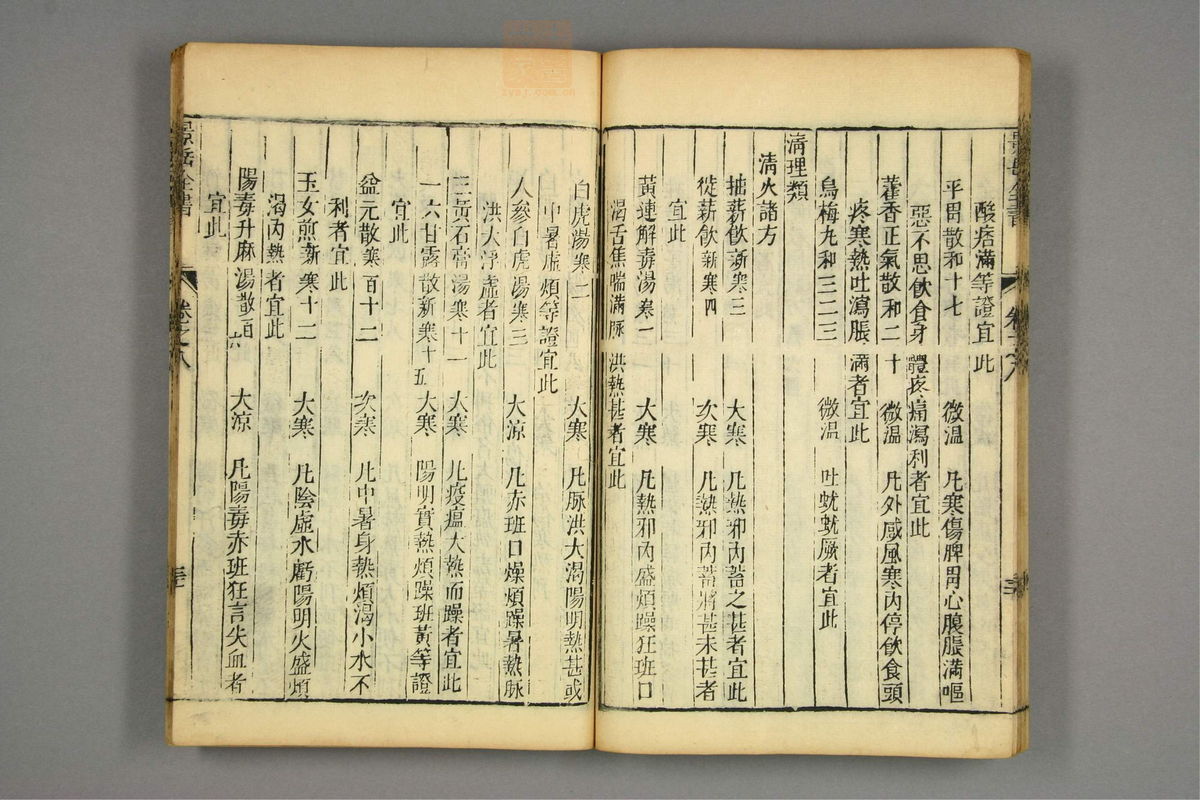 酸痞滿等證宜此
平胃散和十七 微温 凡寒傷脾胃心腹脹滿嘔
惡不思飲食身體疼痛瀉利者宜此
藿香正氣散和二十 微温 凡外感風寒內停飲食頭
疼寒熱吐瀉脹滿者宜此
烏梅丸和三二三 微温 吐蚘蚘厥者宜此
清理類
清火諸方
抽薪飲新寒三 大寒 凡熱邪內蓄之甚者宜此
徙薪飲新寒四 次寒 凡熱邪內蓄將甚未甚者
宜此
黃連解毒湯寒一 大寒 凡熱邪內盛煩躁狂班口
渴舌焦喘滿脉洪熱甚者宜此
白虎湯寒二 大寒 凡脉洪大渴陽明熱甚或
中暑虛煩等證宜此
人參白虎湯寒三 大凉 凡赤班口燥煩躁暑熱脉
洪大浮虛者宜此
三黃石膏湯寒十一 大寒 凡疫瘟大熱而躁者宜此
一六甘露散新寒十五 大寒 陽明實熱煩躁班黃等證
宜此
益元散寒百十二 次寒 凡中暑身熱煩渴小水不
利者宜此
玉女煎新寒十二 大寒 凡陰虛水虧陽明火盛煩
渴內熱者宜此
陽毒升麻湯散百六 大凉 凡陽毒赤班狂言失血者
宜此
景岳全書